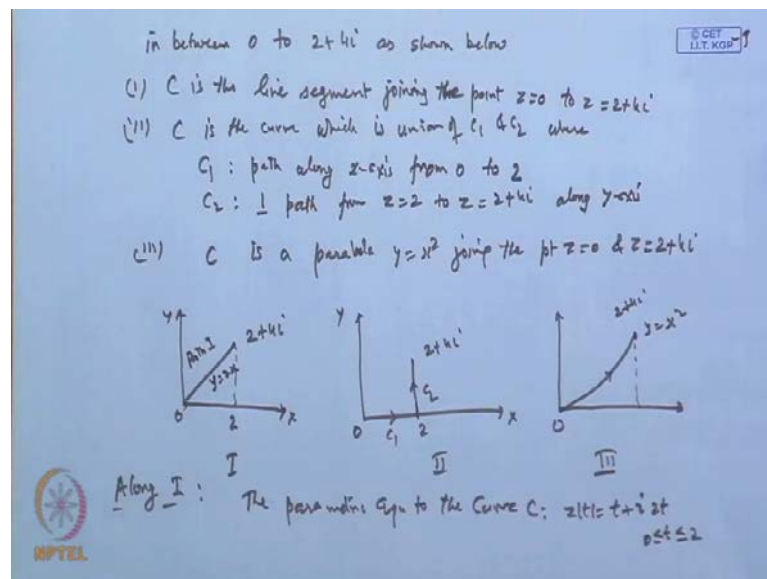 © CET
I.I.T. KGP
in between 0 to 2+4i as shown below
(i) C is the line segment joining the point z=0 to z=2+4i
(ii) C is the curve which is union of C1 & C2 where
C1 : path along x-axis from 0 to 2
C2 : ⊥ path from z=2 to z=2+4i along y-axis
(iii) C is a parabola y=x² joining the pt z=0 & z=2+4i
y 2+4i Path I y=2x 0 2 x
y 2+4i C2 0 C1 2 x
2+4i y=x² 0
I II III
Along I : The parametric Equ to the Curve C: z(t)= t+i 2t
0≤t≤2
NPTEL